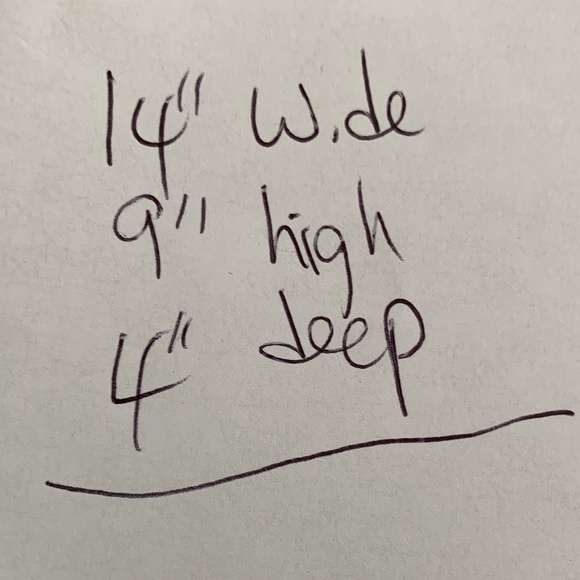 14" Wide
9" high
4" deep